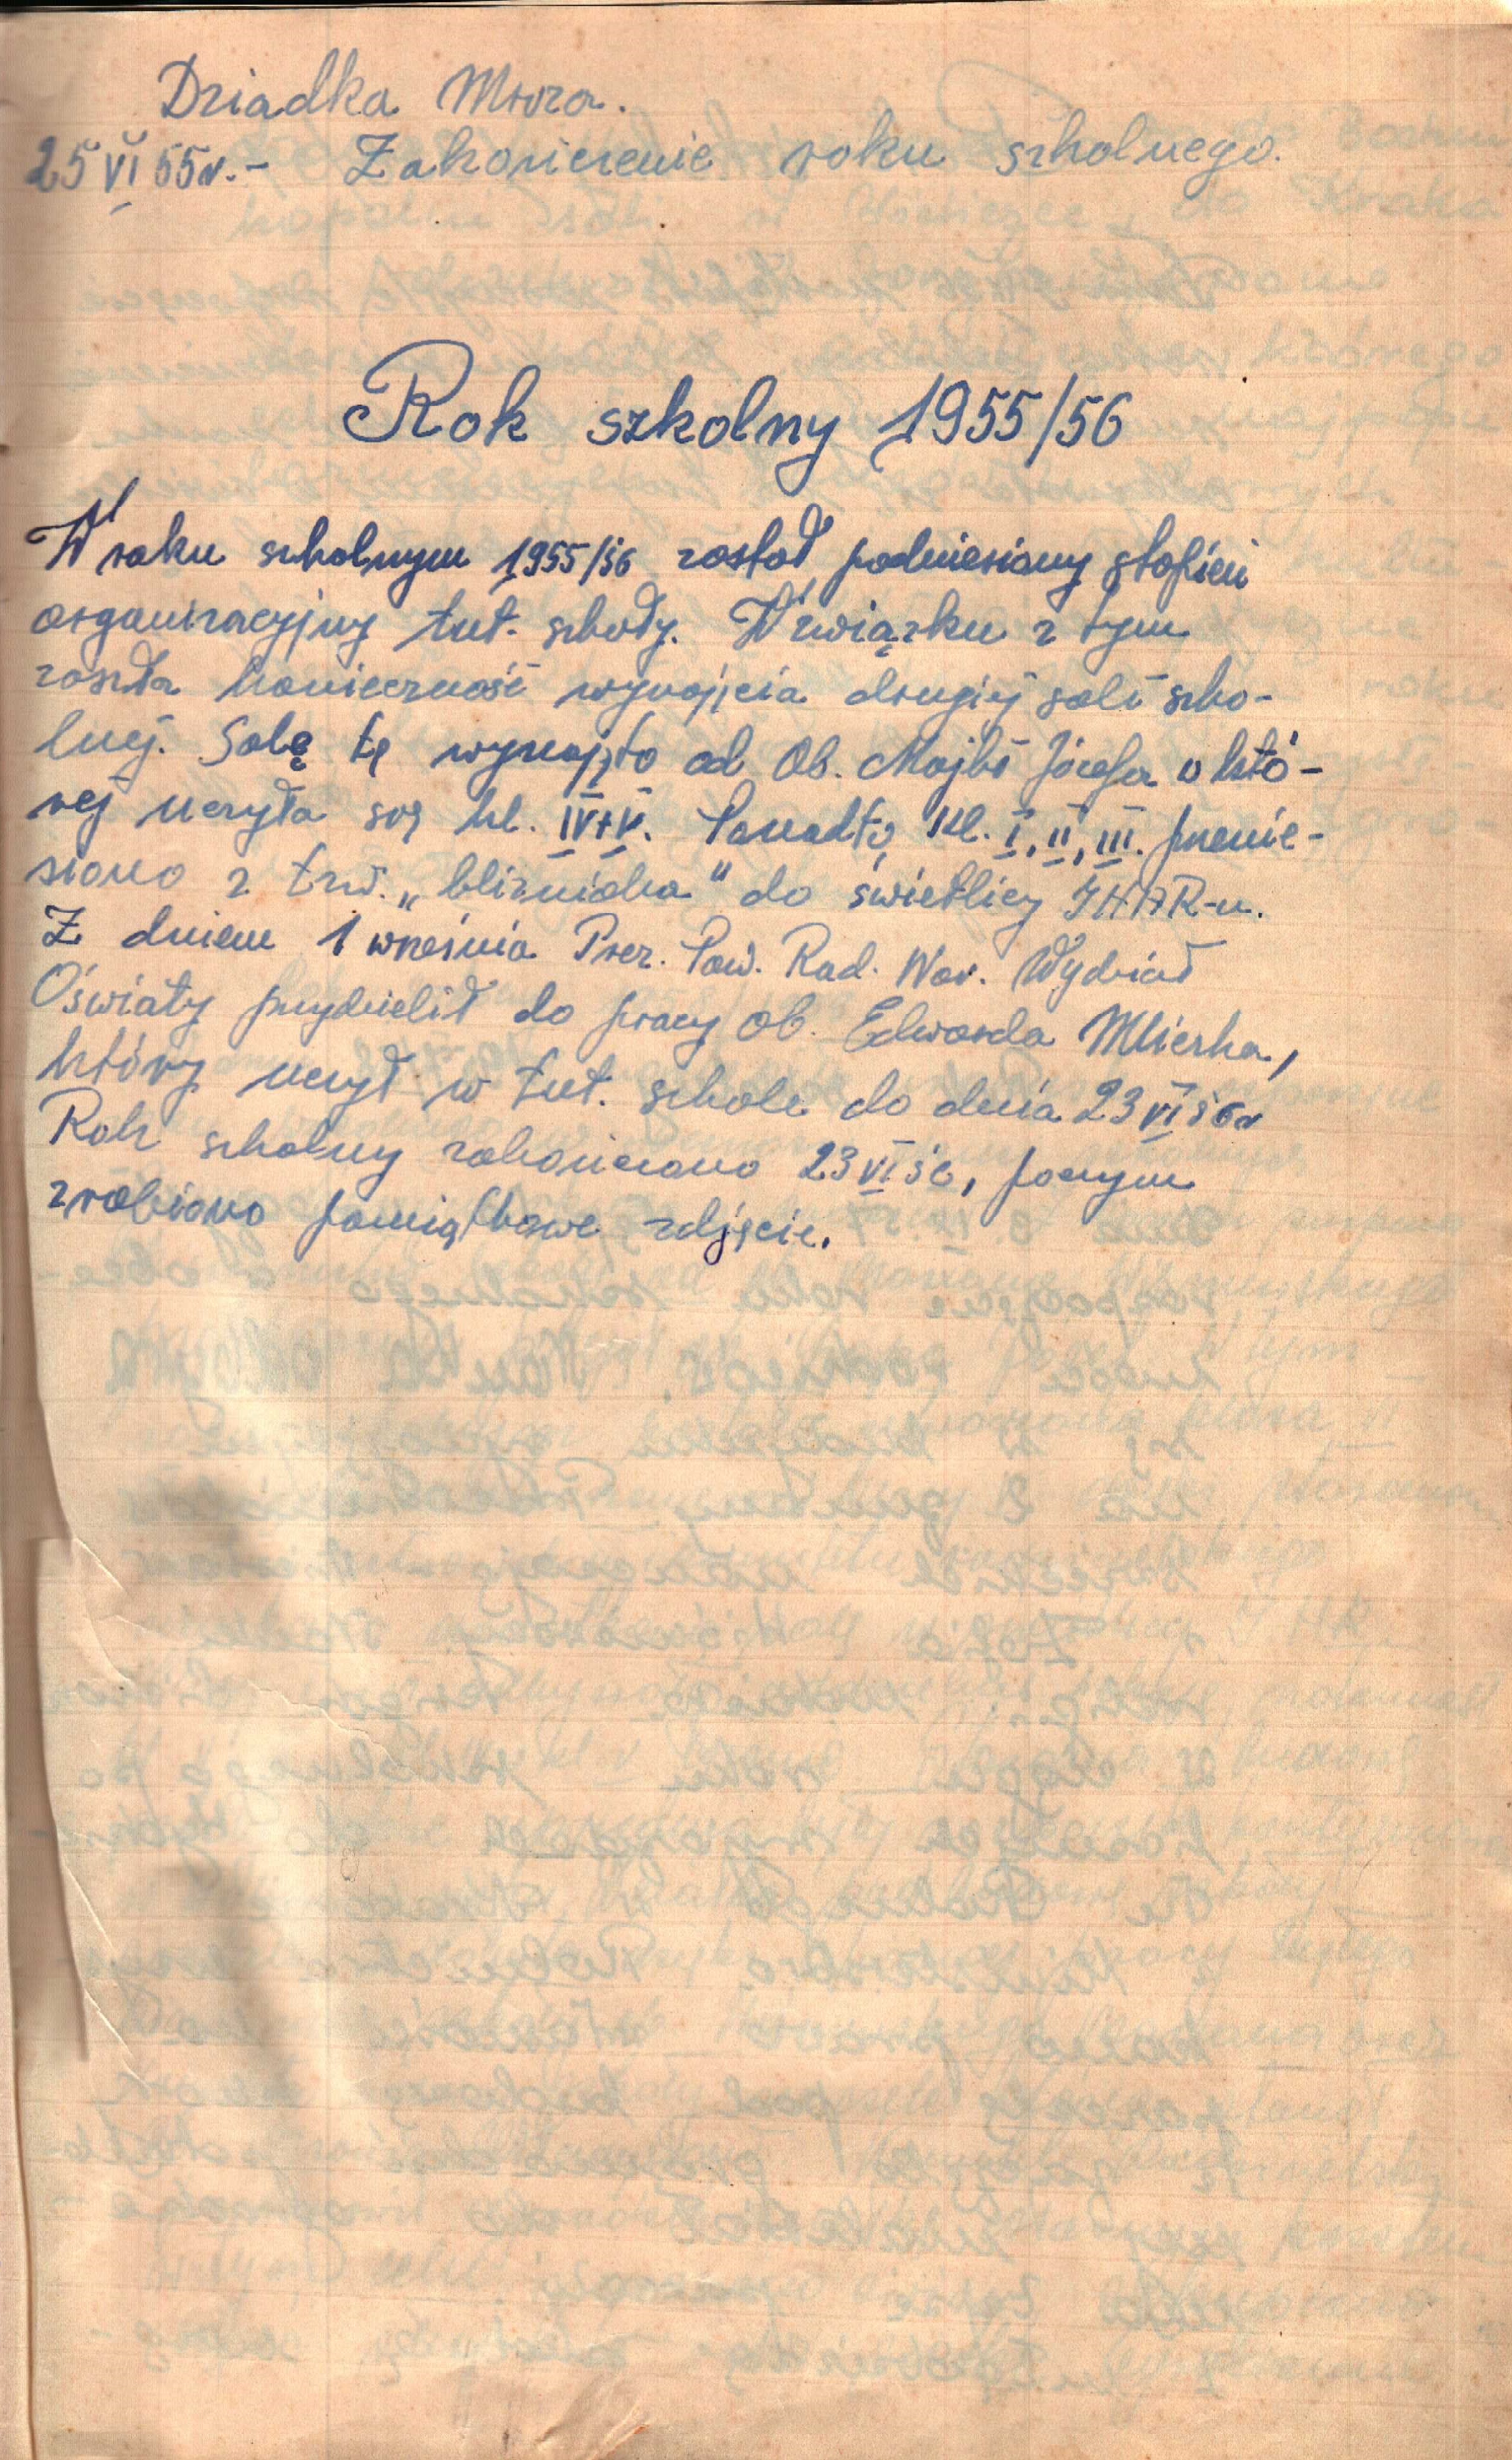 Dziadka Mroza.
25 VI 55r. - Zakończenie roku szkolnego.
Rok szkolny 1955/56
W roku szkolnym 1955/56 został podniesiony stopień
organizacyjny tut. szkoły. W związku z tym
zaszła konieczność wynajęcia drugiej sali szko-
lnej. Salę tę wynajęto od Ob. Majki Józefa w któ-
rej uczyła się kl. IV+V. Ponadto kl. I, II, III. przenie-
siono z tzw. "bliźniaka" do świetlicy IHAR-u.
Z dniem 1 września Prez. Pow. Rad. Nar. Wydział
Oświaty przydzielił do pracy ob. Edwarda Mlicrka,
który uczył w tut. szkole do dnia 23 VI 56r
Rok szkolny zakończono 23 VI 56, poczym
zrobiono pamiątkowe zdjęcie.